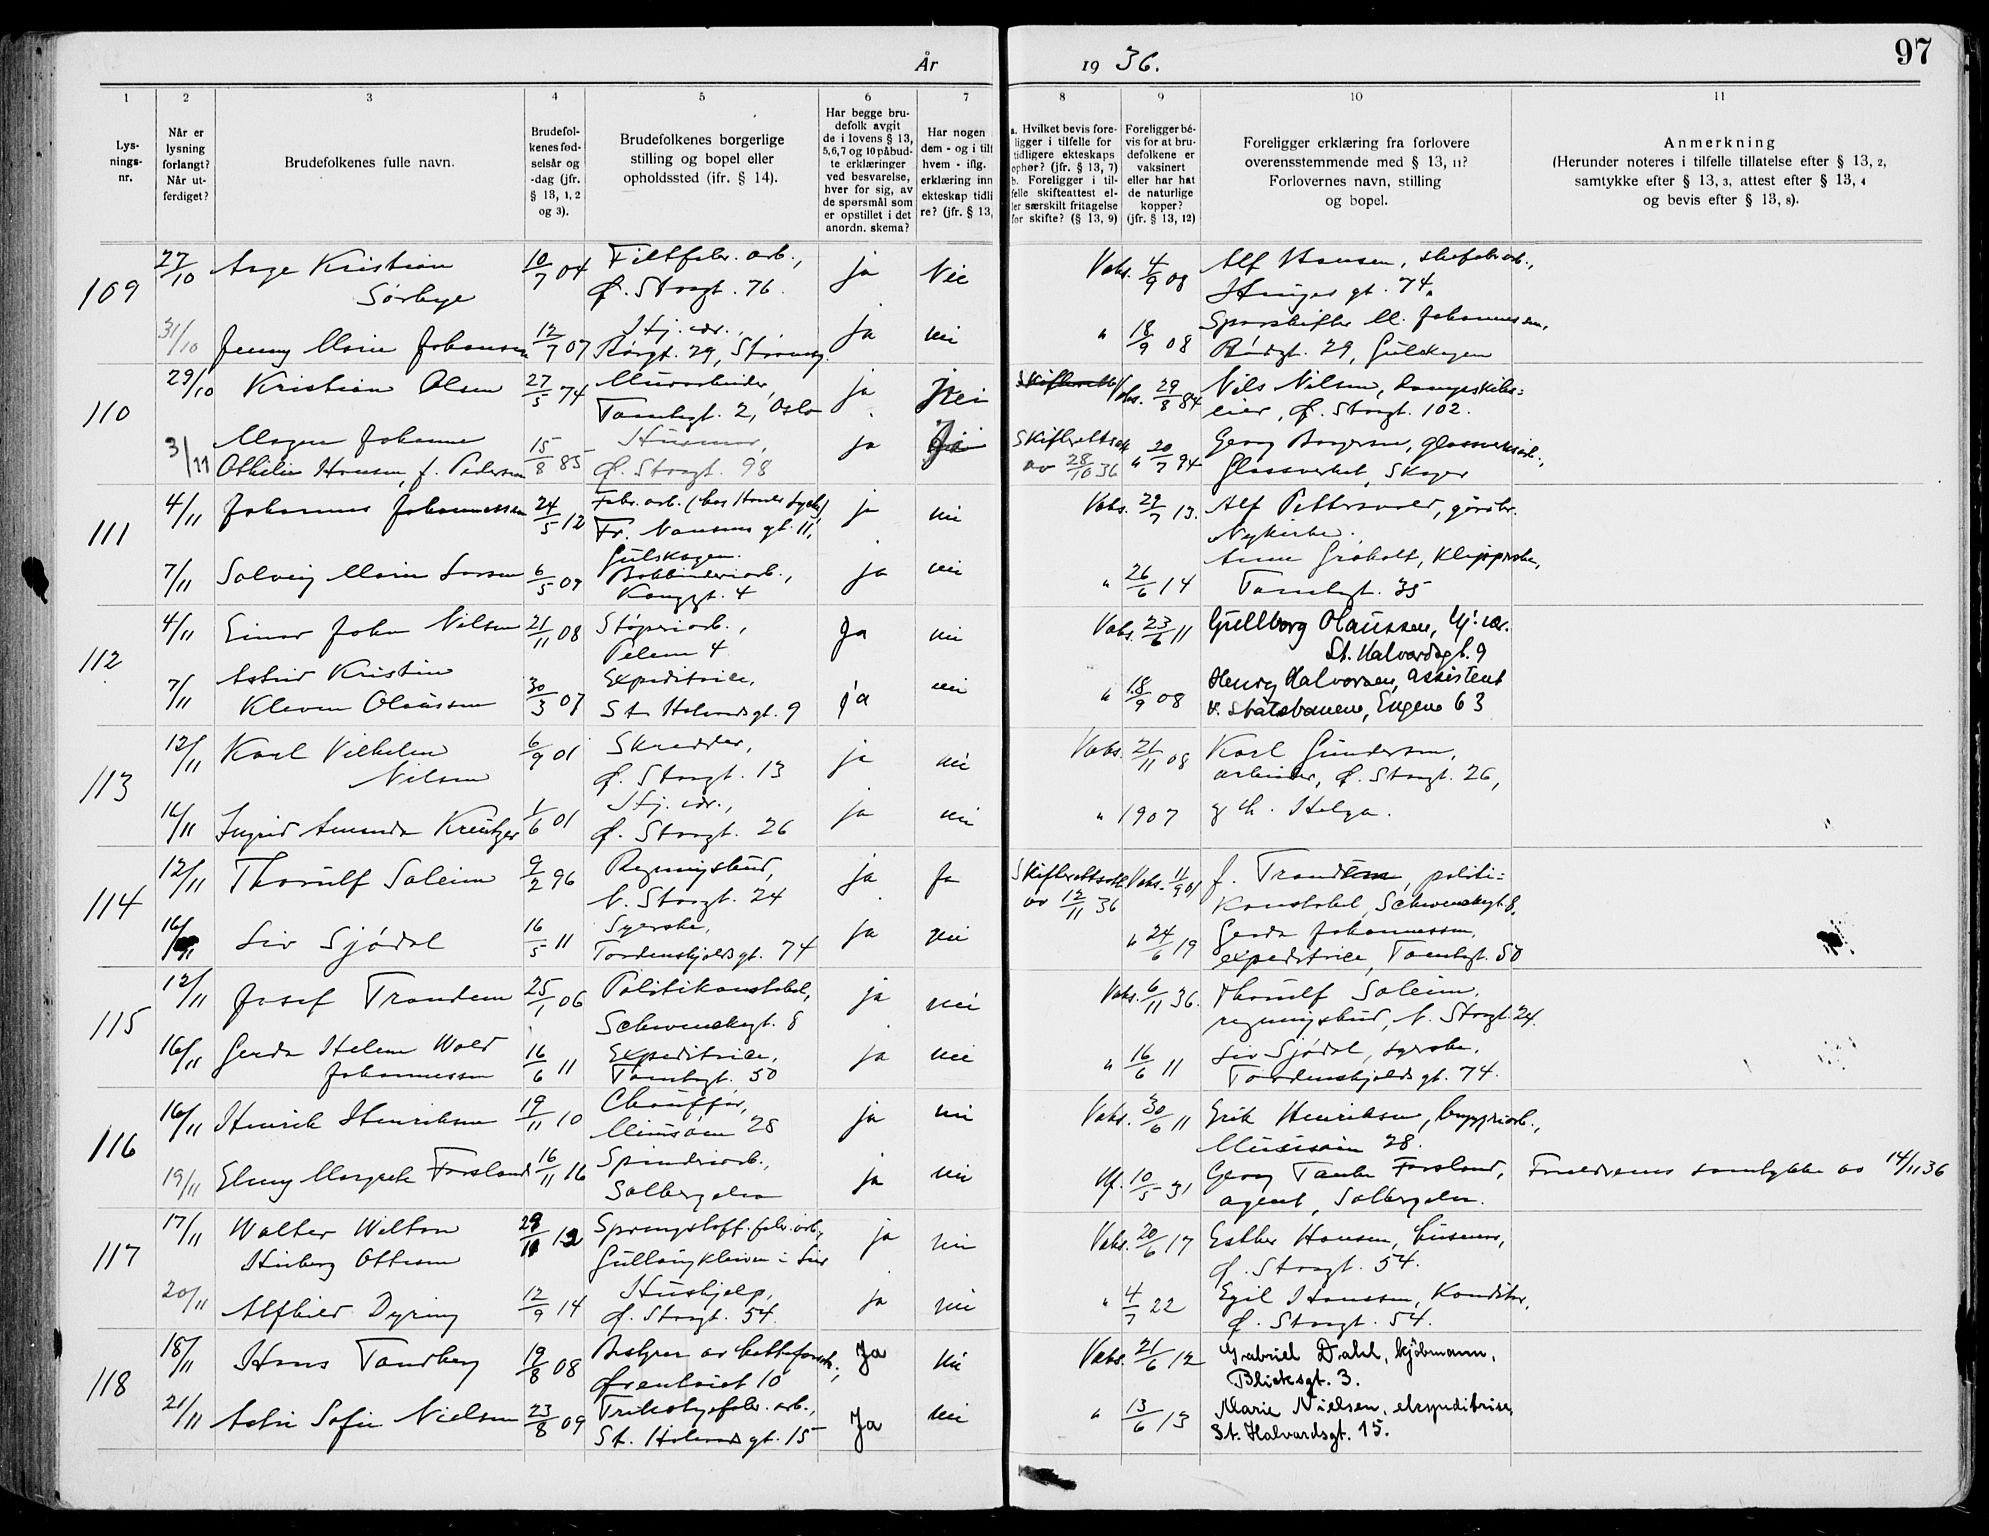 97
År 1936.
1 2 3 4 5 6 7 8 9 10 11
Lys-
nings-
nr.
Når er
lysning
forlangt?
Når ut-
ferdiget?
Brudefolkenes fulle navn.
Brudefol-
kenes fød-
selsår og
-dag (jfr.
§ 13, 1, 2
og 3).
Brudefolkenes borgerlige
stilling og bopel eller
opholdssted (ifr. § 14).
Har begge bru-
defolk avgit
de i lovens § 13,
5,6,7 og 10 påbud-
te erklæringer
ved besvarelse,
hver for sig, av
de spørsmål som
er opstillet i det
anordn. skema?
Har nogen
dem - og i tilf
hvem - iflg.
erklæring inn
ekteskap tidli
re? (jfr. § 13,
a. Hvilket bevis fore-
ligger i tilfelle for
tidligere ekteskaps
ophør? (jfr. § 13, 7)
b. Foreligger i til-
felle skifteattest el-
ler særskilt fritagelse
for skifte? (§ 13, 9)
Foreligger be-
vis for at bru-
defolkene er
vaksinert
eller har hat
de naturlige
kopper?
(jfr. § 13, 12)
Foreligger erklæring fra forlovere
overensstemmende med § 13, 11?
Forlovernes navn, stilling
og bopel.
Anmerkning
(Herunder noteres i tilfelle tillatelse efter § 13, 2,
samtykke efter § 13, 3, attest efter § 13, 4
og bevis efter § 13, 8).
109 27/10 Aage Kristian 10/7 04 Filtfabr. arb., ja Nei Vaks. 4/9 08 Alf Hansen, skofabarb.,
Sørbye Ø. Storgt. 76. gt. 74
31/10 Jenny Marie Johansen 12/7 07 Hj. vær., ja nei " 18/9 08 Sporskifter M. Johannessen,
29, 29, Gulskogen
110 29/10 Kristian Olsen 27/5 74 Murarbeider, ja nei Vaks. 29/8 84 Nils Nilsen, dampskibs=
Tomtegt. 2, Oslo eier, Ø. Storgt. 102.
3/11 Johanne 15/8 85 Husmor, ja Ja Skifterettsatt. " 20/7 94 Georg glassverksarb.,
Othilie Hansen, f. Pedersen Ø. Storgt. 98 av 28/10 36 Glassverket, Skoger
111 4/11 Johannes Johannessen 24/5 12 Fabr. arb. ja nei Vaks. 29/7 13. Alf Pettersvold, gårdbr.
Fr. Nansens gt. 11, Nykirke.
Gulskogen.
7/11 Solveig Marie Larsen 6/5 09 ja nei " 26/6 14 Anne
Konggt. 4 Tomtegt. 35
112 4/11 Einar John Nilsen 21/11 08 Støperiarb., Ja nei Vaks. 23/6 11 Gullborg Olaussen, hj. vær.
Pelem 4 St. Halvardsgt. 9
7/11 Astrid Kristine 30/3 07 Expeditrice, ja nei " 18/9 08 Henry Halvorsen, assistent
Kleven Olaussen St. Halvardsgt. 9 v. Statsbanene, Engene 63
113 12/11 Karl Vilhelm 6/9 01 Skredder, ja nei Vaks. 21/11 08 Karl Gundersen,
Nilsen Ø. Storgt. 13 arbeider, Ø. Storgt. 26,
16/11 Ingrid Amanda Kreutzer 1/6 01 Hj. vær., ja nei " 1907 g h. Helga.
Ø. Storgt. 26
114 12/11 Thorulf Soleim 9/2 96 Regningsbud, ja ja Skifterettsatt. Vaks. 11/9 01 J. Trondsen, politi=
N. Storgt. 24 av 12/11 36 konstabel, Schwenckegt. 8.
16/11 Liv Sjødal 16/5 11 Syerske, ja nei " 24/6 19 Gerda Johannessen,
Tordenskjoldsgt. 74 expeditrice, Tomtegt. 50
115 12/11 Josef Trondsen 25/1 06 Politikonstabel, ja nei Vaks. 6/11 36. Thorulf Soleim,
Schwenckegt. 8 regningsbud, N. Storgt. 24.
16/11 Gerda Helene Wold 16/6 11 Expeditrice, ja nei " 16/6 11 Liv Sjødal, syerske,
Johannessen Tomtegt. 50 Tordenskjoldsgt. 74.
116 16/11 Henrik Henriksen 19/11 10 Chauffør, ja nei Vaks. 30/6 11 Erik Henriksen, bryggeriarb.,
28 28.
19/11 Elnny Margrete Forsland 16/11 16 Spinneriarb., ja nei Vf. 10/5 31 Georg Forsland, Foreldrenes samtykke av 14/11 36
Solbergelva agent, Solbergelva.
117 17/11 Walter Wilton 29/11 12 Sprengstoff. fabr. arb., ja nei Vaks. 20/6 17 Esther Hansen, husmor,
Hinberg Ottesen Gullaugkleiven i Lier Ø. Storgt. 54.
20/11 Alfhild Dyring 12/9 14 Hushjelp, ja nei " 4/7 22 Egil Hansen, konditor,
Ø. Storgt. 54. Ø. Storgt. 54.
118 18/11 Hans Tandberg 19/8 08 Bestyrer av Ja nei Vaks. 21/6 12 Gabriel Dahl, kjøbmann,
Ørenkvist 10 Blicksgt. 3.
21/11 Sofie Nielsen 23/8 09 Trikotagefabr. arb., Ja nei " 13/6 13 Marie Nielsen, ekspeditrise
St. Halvardsgt. 15 St. Halvardsgt. 15.